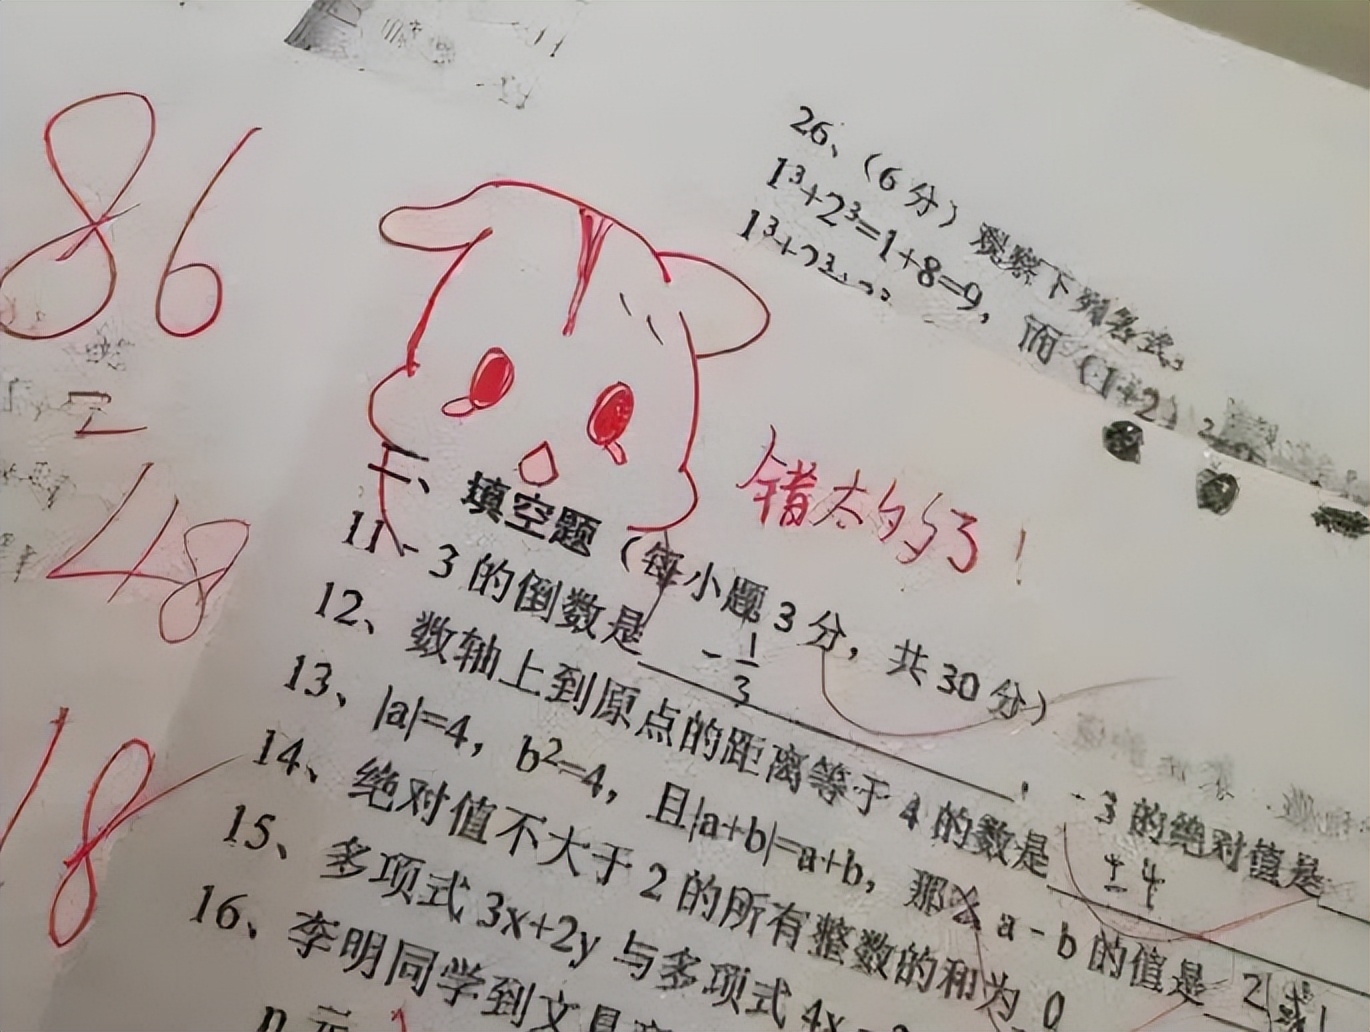 86
48
18
26、（6分）观察下列各式。
1³+2³=1+8=9，而（1+2）²
1³+2³
错太多了！
二、填空题（每小题3分，共30分）
11、-3的倒数是 -1/3 ，-3的绝对值是
12、数轴上到原点的距离等于4的数是 ±4
13、|a|=4，b²=4，且|a+b|=a+b，那么a-b的值是 2
14、绝对值不大于2的所有整数的和为 0
15、多项式3x+2y与多项式4x-2
16、李明同学到文具
n元